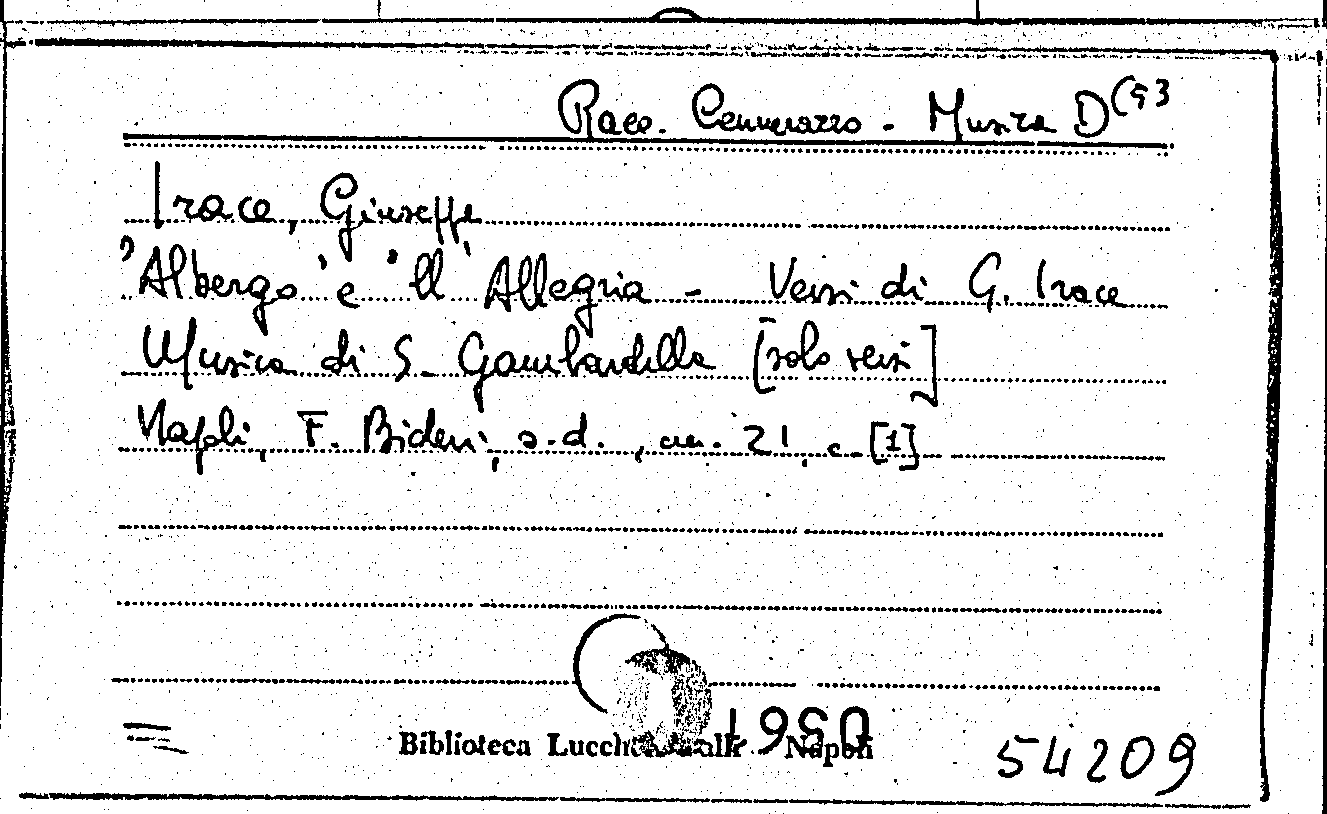 Racc. Cennerazzo - Musica D(93
Irace, Giuseppe
'Albergo 'e ll' Allegria - Versi di G. Irace
Musica di S. Gambardella [solo versi]
Napoli, F. Bideri, s.d., cm. 21, c. [1]
Biblioteca Napoli
54209